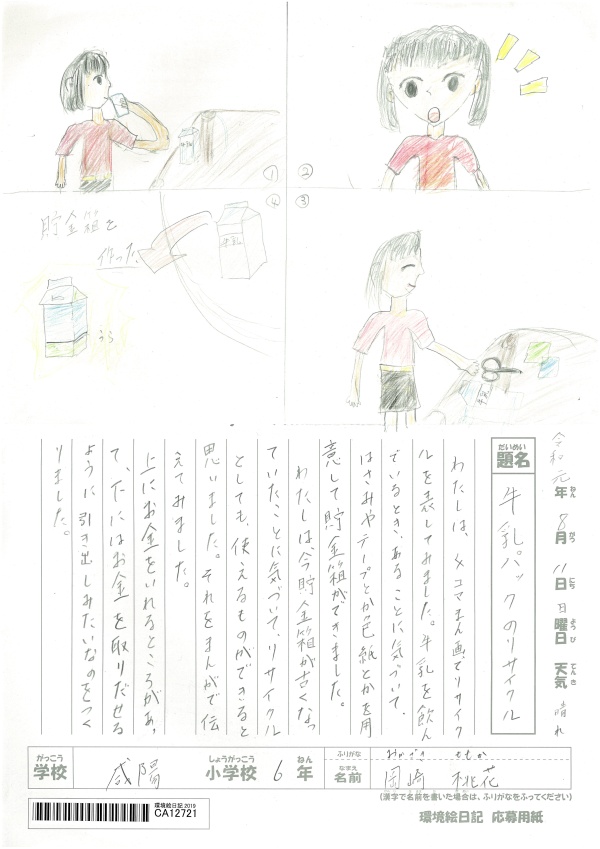 ①
②
④
③
貯金箱を
作った
牛乳
うら
令和元年8月11日日曜日天気晴れ
ねん
がつ
にち
ようび
てんき
だいめい
題名
牛乳パックのリサイクル
わたしは、4コマまん画でリサイク
ルを表してみました。牛乳を飲ん
でいるとき、あることに気づいて、
はさみやテープとか色紙とかを用
意して貯金箱ができました。
わたしは、今貯金箱が古くなっ
ていたことに気づいて、リサイクル
としても、使えるものができると
思いました。それをまんがで伝
えてみました。
上にお金をいれるところがあっ
て、下にはお金を取りだせる
ように引き出しみたいなのをつく
りました。
がっこう
学校
咸陽
しょうがっこう
小学校
6
ねん
年
ふりがな
おかざき ももか
なまえ
名前
岡崎 桃花
(漢字で名前を書いた場合は、ふりがなをふってください)
環境絵日記2019
CA12721
環境絵日記 応募用紙